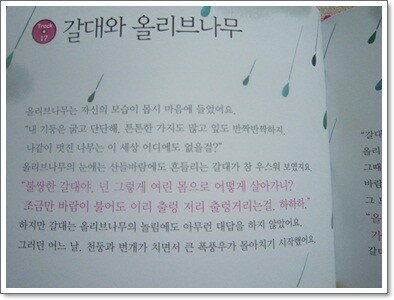 Track 17
갈대와 올리브나무
올리브나무는 자신의 모습이 몹시 마음에 들었어요.
"내 기둥은 굵고 단단해, 튼튼한 가지도 많고 잎도 반짝반짝하지.
나같이 멋진 나무는 이 세상 어디에도 없을걸?"
올리브나무의 눈에는 산들바람에도 흔들리는 갈대가 참 우스워 보였지요.
"불쌍한 갈대야, 넌 그렇게 여린 몸으로 어떻게 살아가니?
조금만 바람이 불어도 이리 출렁 저리 출렁거리는걸, 하하하."
하지만 갈대는 올리브나무의 놀림에도 아무런 대답을 하지 않았어요.
그러던 어느 날, 천둥과 번개가 치면서 큰 폭풍우가 몰아치기 시작했어요.
"갈대
올리
그때
바람
그 모
"올
가
갈다